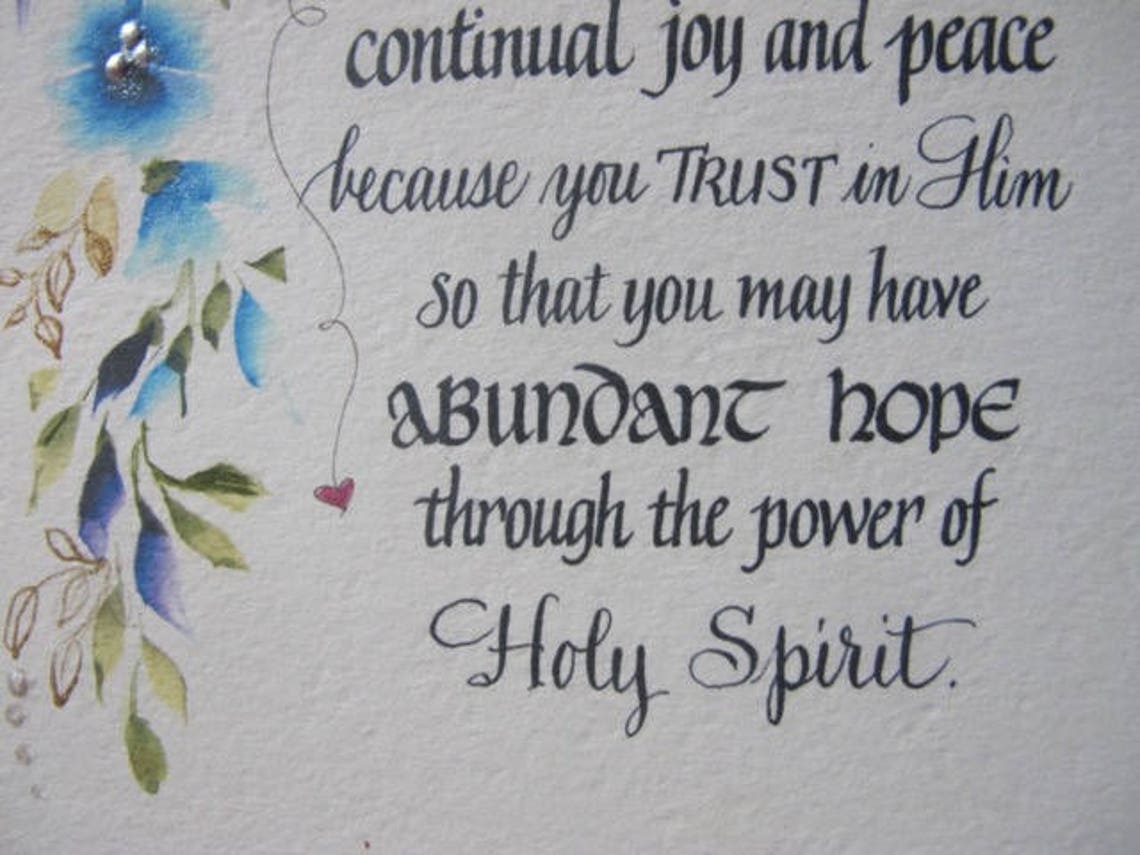 continual joy and peace
because you TRUST in Him
so that you may have
ABUNDANT HOPE
through the power of
Holy Spirit.